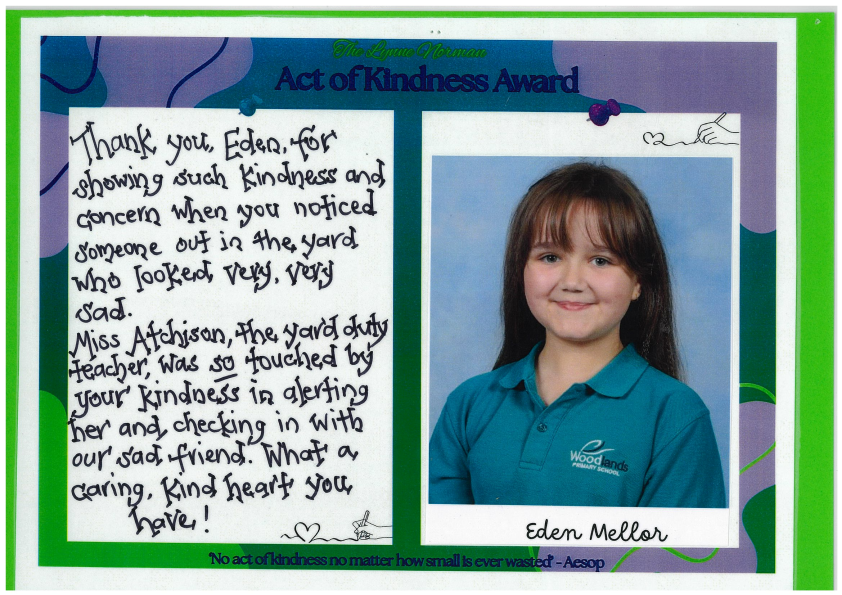 The Lynne Norman
Act of Kindness Award
Thank you, Eden, for
showing such kindness and
concern when you noticed
someone out in the yard
who looked very, very
sad.
Miss Atchison, the yard duty
teacher, was so touched by
your kindness in alerting
her and checking in with
our sad friend. What a
caring, kind heart you
have!
Woodlands
PRIMARY SCHOOL
Eden Mellor
'No act of kindness no matter how small is ever wasted' - Aesop